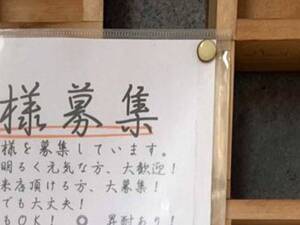 様募集
様を募集しています。
明るく元気な方、大歓迎!
来店頂ける方、大募集!
でも大丈夫!
もOK! ◎ 昇酎あり!